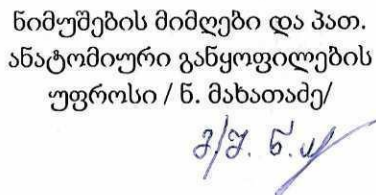 ნიმუშების მიმღები და პათ.
ანატომიური განყოფილების
უფროსი / ნ. მახათაძე/